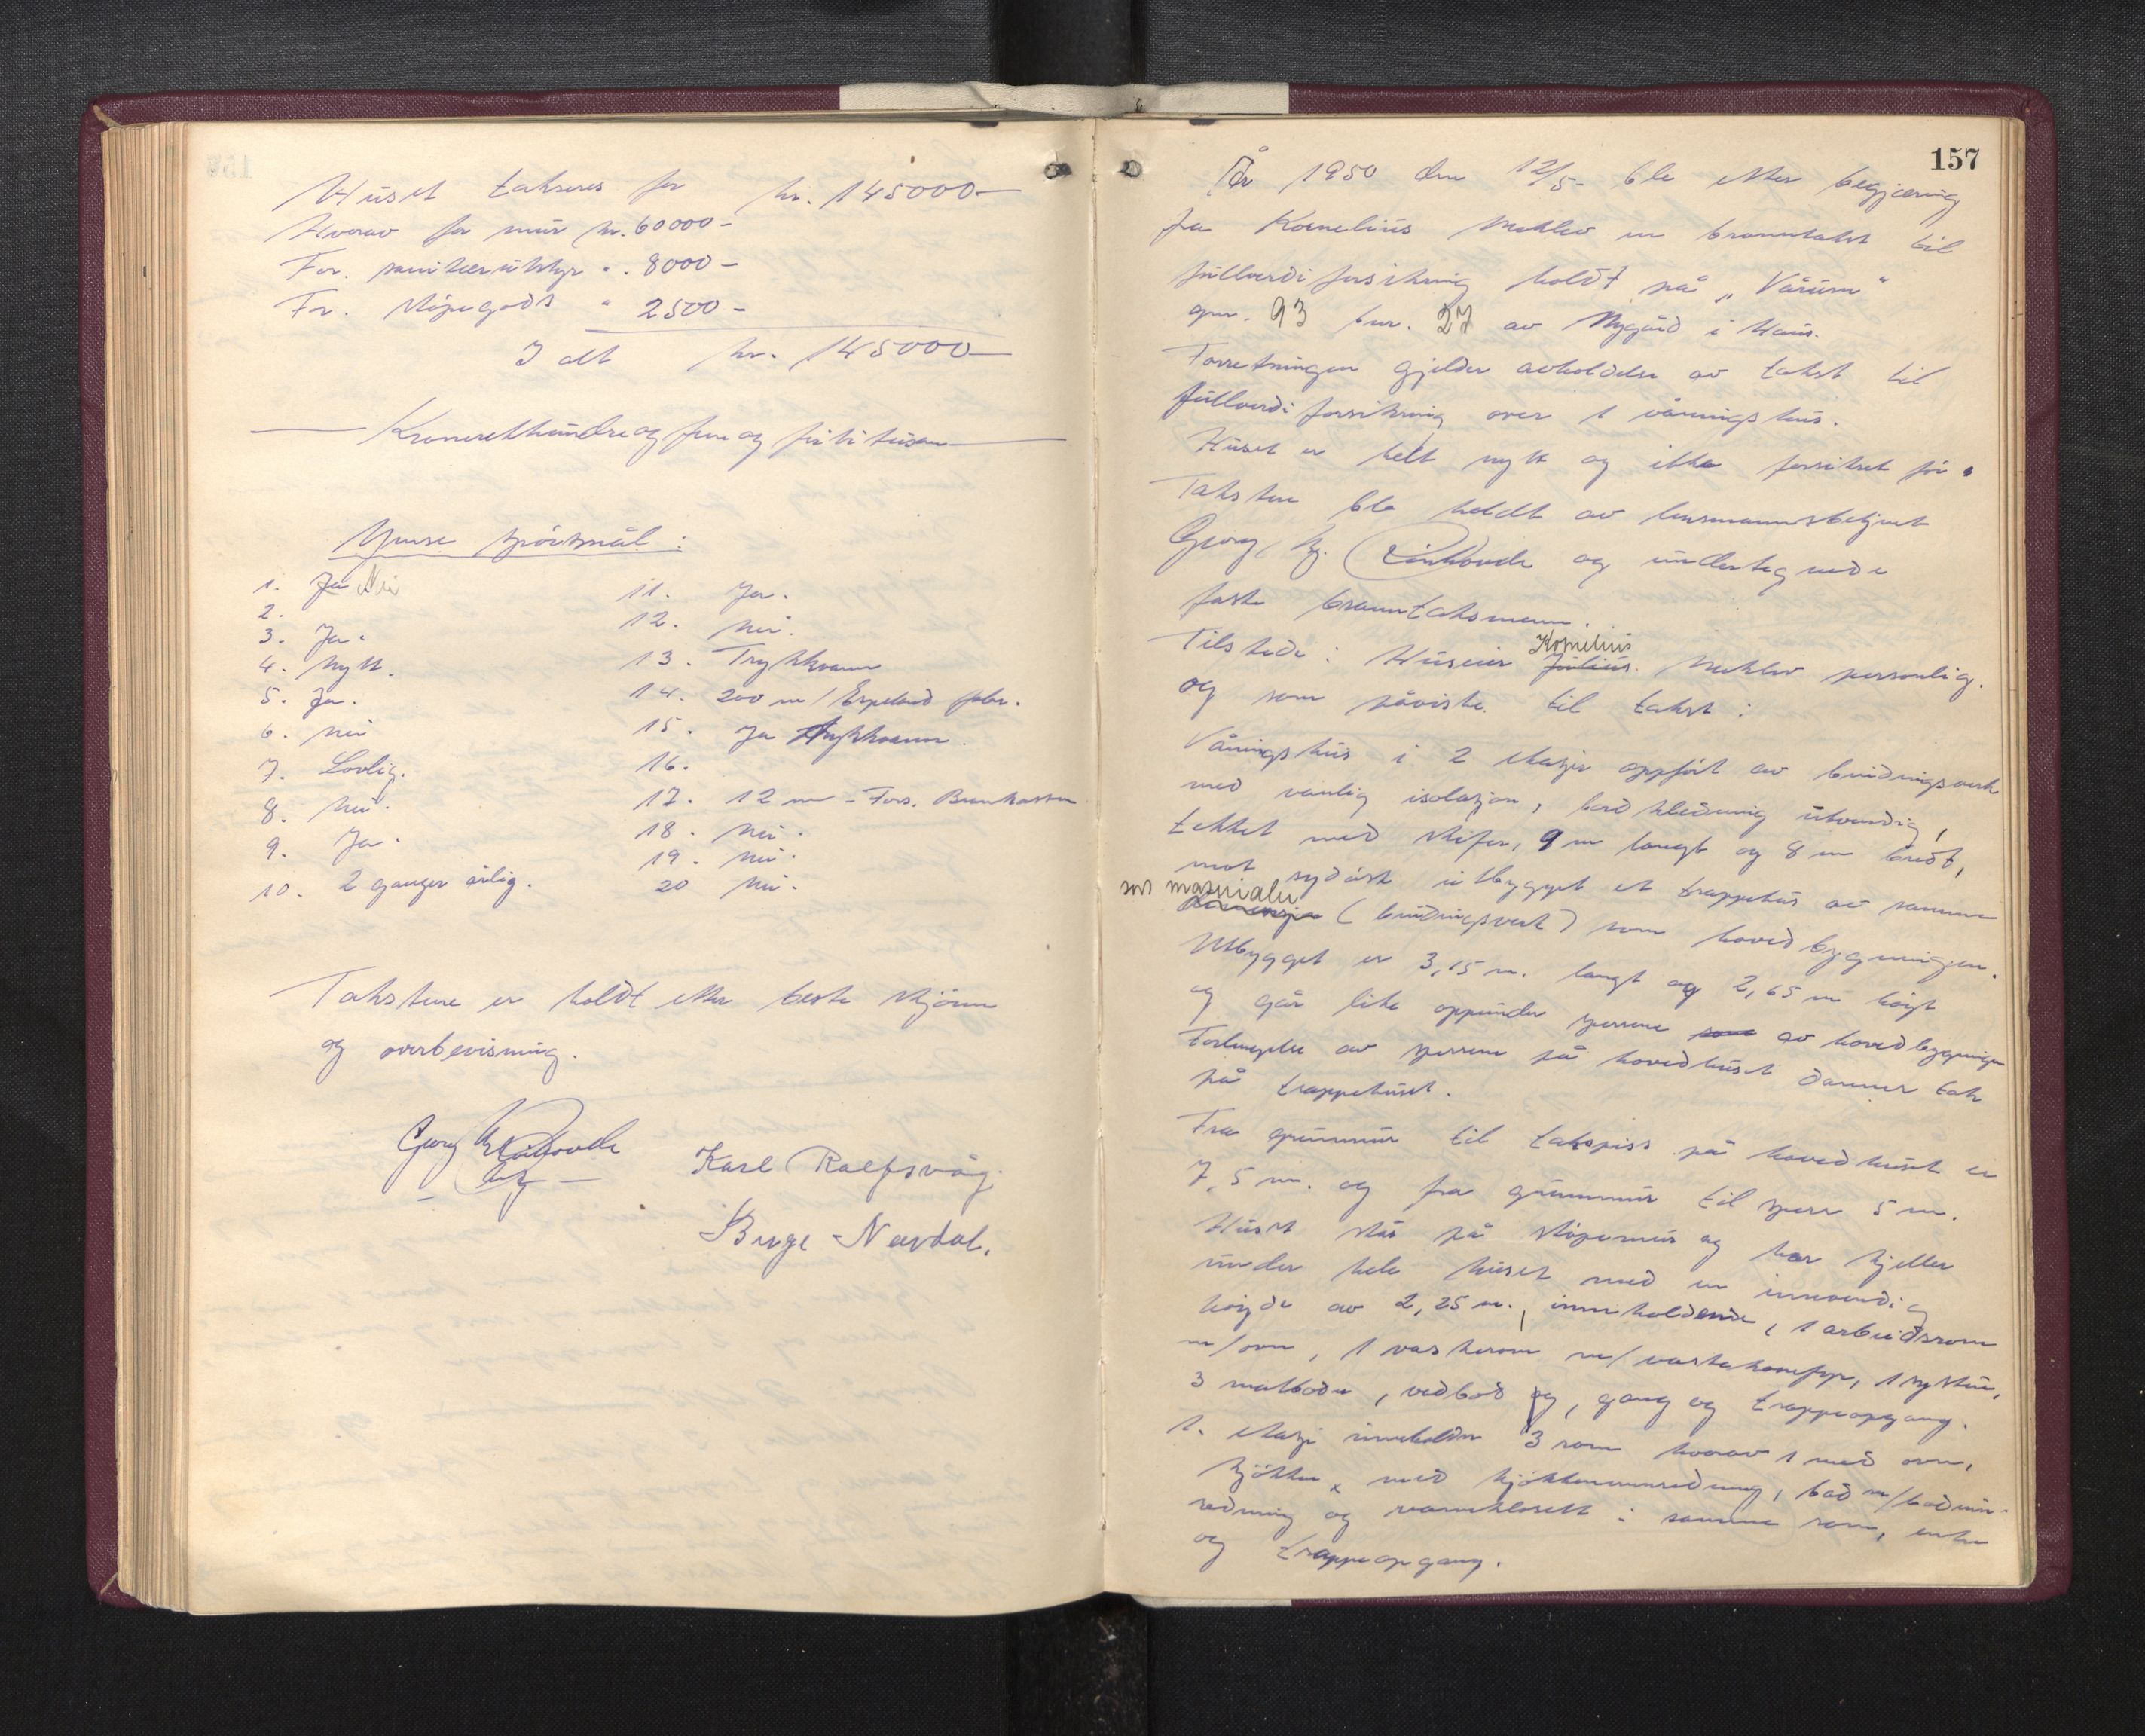 Huset takseres for kr. 145000-
Hvorav for mur kr. 60000-
For. sanitærutstyr " . 8000-
For. støpegods " 2500-
I alt kr. 145000-
Kroneretthundreogfemogførtitusen
Ymse spörsmål:
1. Ja Nei
2.
3. Ja.
4. Nytt.
5. Ja.
6. Nei
7. Lovlig.
8. Nei.
9. Ja.
10. 2 ganger årlig.
11. Ja.
12. Nei.
13. Trykkvann
14. 200 m / Espeland fabr.
15. Ja trykkvann.
16.
17. 12 m - Fors. Brankassen
18. Nei.
19. Nei.
20 Nei.
Takstene er holdt etter beste skjönn
og overbevisning.
Georg
Karl Rolfsvåg.
Birge Navdal.
157
År 1950 den 12/5- ble etter begjæring
fra Kornelius en branntakst til
fullverdiforsikring holdt på "Vårum"
gnr. 93 bnr. 27 av Nygård i Haus.
Forretningen gjelder avholdelse av takst til
fullverdiforsikring over 1 våningshus.
Huset er helt nytt og ikke forsikret för.
Takstene ble holdt av lensmannsbetjent
Georg og undertegnede
faste branntaksmenn.
Kornelius
Tilstede: Huseier Julius. personlig.
og som påviste til takst:
Våningshus i 2 etasjer oppfört av bindingsverk
med vanlig isolasjon, bordkledning utvendig,
tekket med skifer, 9 m langt og 8 m bredt,
mot sydöst utbygget et trappehus av samme
sos materialer
dimensjon (bindingsverk) som hovedbygningen.
Utbygget er 3,15 m. langt og 2,65 m höyt
og går like oppunder sperrene som av hovedbygningen
Forlengelse av sperrene på hovedhuset danner tak
på trappehuset.
Fra grunnmur til takspiss på hovedhuset er
7,5 m. og fra grunnmur til sperr 5 m.
Huset står på stöpemur og har kjeller
under hele huset med en innvendig
höyde av 2,25 m., inneholdende, 1 arbeidsrom
m/ovn, 1 vaskerom m/vaskekomfyr, 1 systue,
3 matboder, vedbod og, gang og trappeopgang.
1. etasje inneholder 3 rom hvorav 1 med ovn,
kjökken med kjökkeninnredning, bad m/badinn-
redning og vannklosett i samme rom, entre
og trappeopgang.